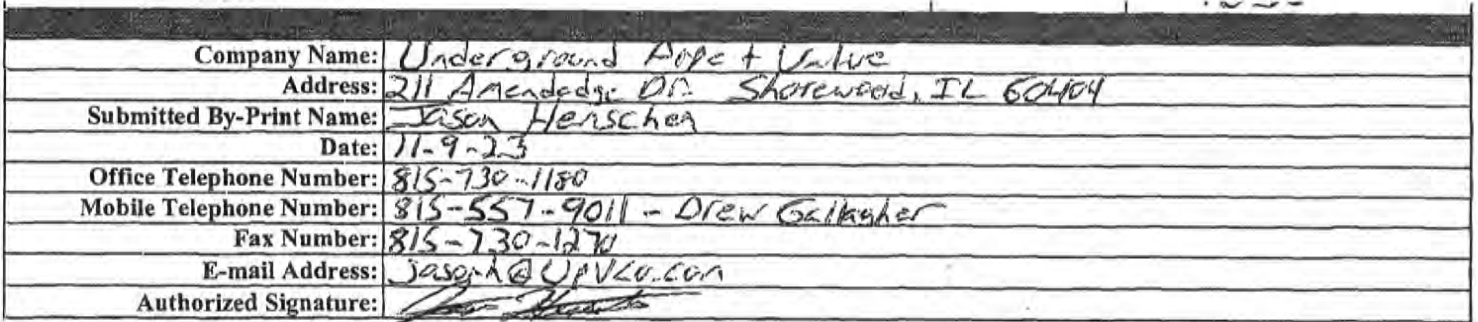 Company Name: Underground Pipe + Valve
Address: 211 Amendodge Dr. Shorewood, IL 60404
Submitted By-Print Name: Jason Henschen
Date: 11-9-23
Office Telephone Number: 815-730-1180
Mobile Telephone Number: 815-557-9011 - Drew Gallagher
Fax Number: 815-730-1270
E-mail Address: jasonh@UPVCo.com
Authorized Signature: